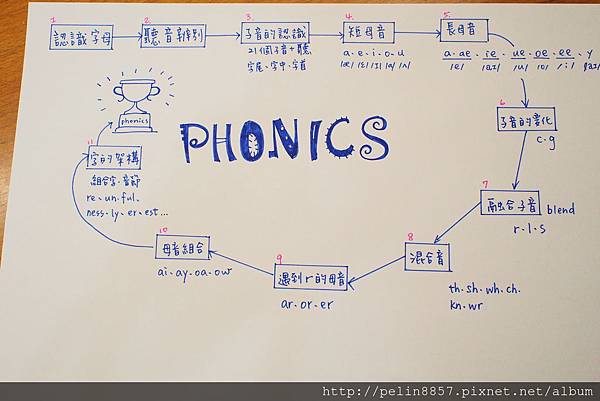 1.
認識字母
2.
聽音辨別
3.
子音的認識
21個子音+聽
字尾、字中、字首
4.
短母音
a.e.i.o.u
/æ/ /ɛ/ /ɪ/ /ɑ/ /ʌ/
5.
長母音
a.ae.ie.ue.oe.ee.y
/e/ /aɪ/ /u/ /o/ /i/
6
子音的變化
c.g
7
融合子音 blend
r.l.s
8
混合音
th.sh.wh.ch.
kn.wr
9
遇到r的母音
ar.or.er
10
母音組合
ai.ay.oa.ow
11
字的架構
組合字.音節
re.un.ful.
ness.ly.er.est...
phonics
PHONICS
http://pelin8857.pixnet.net/album